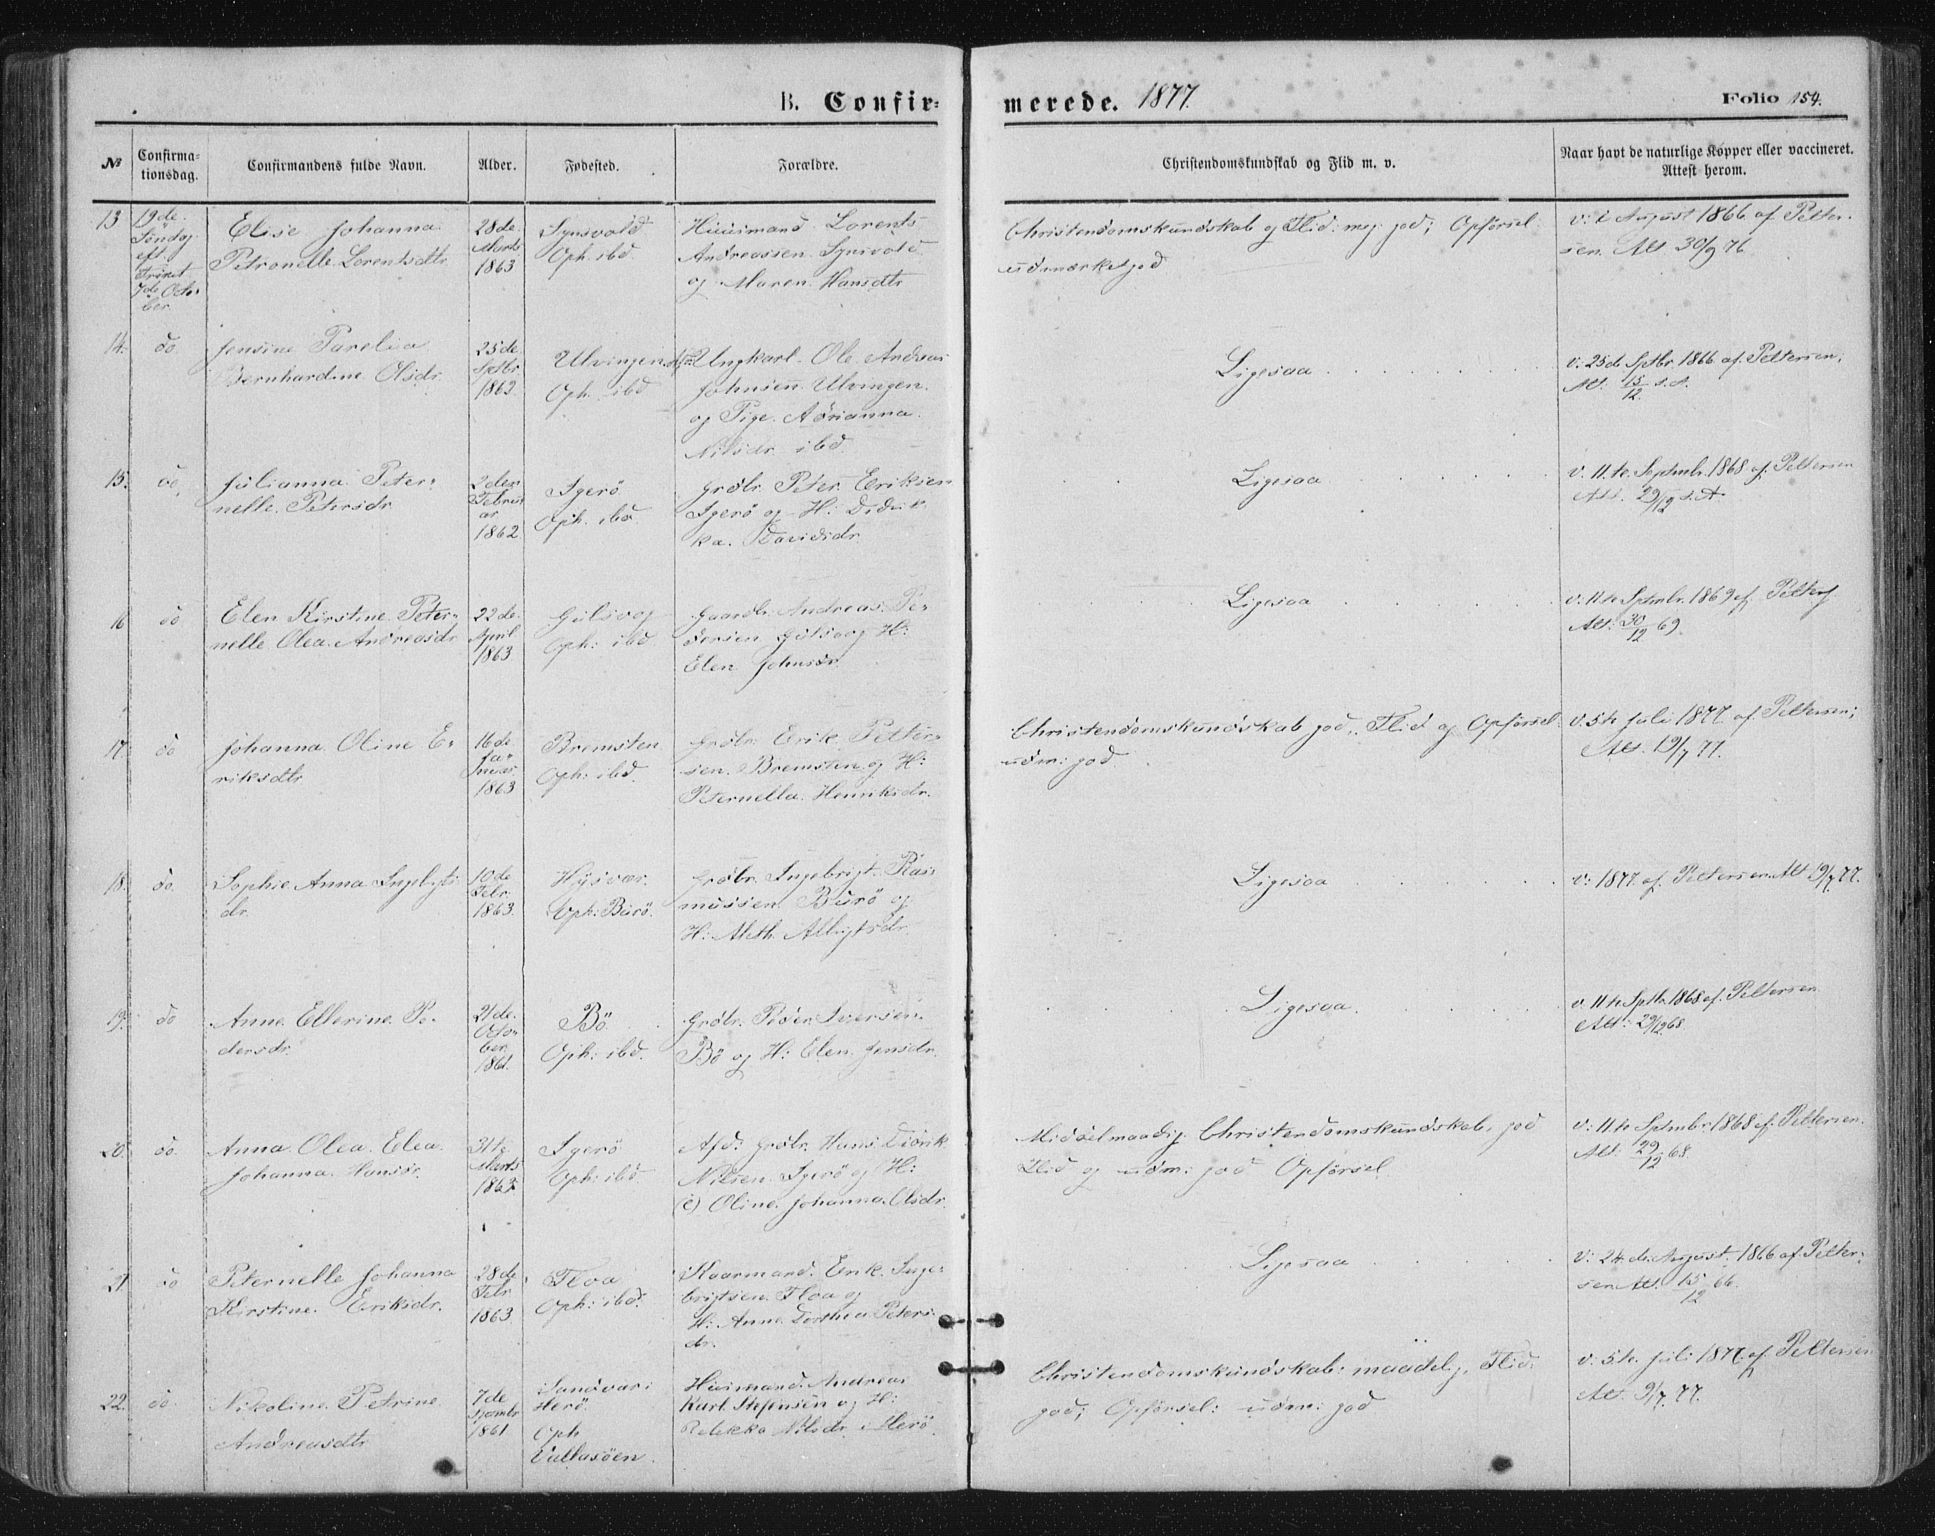 B. Confir-
merede. 1877.
Folio 154.
№
Confirma-
tionsdag.
Confirmandens fulde Navn.
Alder.
Fødested.
Forældre.
Christendomskundskab og Flid m. v.
Naar havt de naturlige Kopper eller vaccineret.
Attest herom.
13
19de
Søndag
eft.
Trinit.
7de Octo-
ber.
Elise Johanna
Petronelle Lorentsdtr
28de
Marts
1863
Synsvold
Oph. ibd.
Huusmand Lorents
Andreassen Synsvold
og Maren Hansdtr
Christendomskundskab og Flid: meg: god; Opførsel:
udmærket god
v: i August 1866 af Petter-
sen. Att 30/9 76.
14.
do
Jensine Parelia
Bernhardine Olsdr.
25de
Sptbr
1862
Ulvingen
Oph. ibd
Ungkarl Ole Andreas
Johnsen Ulvingen.
og Pige Adrianna
Nilsdr ibd.
Ligesaa
v. 25de Sptbr. 1866 af Pettersen,
Att: 15/12 s.A.
15.
do.
Julianna Peter-
nelle Petersdr
2den
Februar
1862
Igerö
Oph. ibd.
Grdbr. Peter Eriksen
Igerö og H: Didrik-
ka Davidsdr.
Ligesaa
v. 11te Septmbr. 1868 af Pettersen
Att. 29/12 s.A.
16
do
Elen Kirstine Peter-
nelle Olea Andreasdr
22de
April
1863
Gulsvog
Oph: ibd
Gaardbr Andreas Pe-
dersen Gulsvog H:
Elen Johnsdr.
Ligesaa
v. 11te Sptmbr. 1869 af Petters
Att: 30/12 69.
17.
do
Johanna Oline E-
riksdtr.
16de
Ja-
nuar
1863
Bremsten
Oph: ibd.
Grdbr. Erik Petter-
sen Bremsten og H:
Peternella Henriksdr.
Christendomskundskab god, Flid og Opførsel
udm: god
v. 5te Juli 1877 af Pettersen;
Att. 19/7 77.
18.
do.
Sophie Anna Ingebrigts-
dr.
10de
Febr.
1863.
Hysvær.
Oph: Burö.
Grdbr. Ingebrigt Ras-
mussen Burö og
H: Aleth Albrigtsdr.
Ligesaa
v: 1877 af Pettersen Att 19/7 77.
19.
do
Anne Ellerine Pe-
dersdr.
21de
Octo-
ber
1861.
Bö
Oph: ibd.
Grdbr. Peder Iversen
Bö og H: Elen Jensdr.
Ligesaa.
v. 11te Sptbr. 1868 af Pettersen
Att: 29/12 68.
20.
do.
Anna Olea Elea
Johanna Hansdr.
31te
Marts
1862
Igerö
Oph: ibd
Afd: Grdbr. Hans Didrik
Nilsen Igerö og H:
(e) Oline Johanna Olsdr.
Middelmaadig Christendomskundskab, god
Flid og udm: god Opførsel
v: 11te Sptmbr. 1868 af Pettersen.
Att: 29/12 68.
21.
do
Peternelle Johanna
Kirstine Eriksdr.
28de
Febr.
1863
Floa
Oph: ibd.
Kaarmand Erik Inge-
brigtsen Floa og
H: Anne Dorthea Peters-
dr.
Ligesaa
v: 24de August 1866 af Petter-
sen Att. 15/12 66.
22.
do.
Nikoline Petrine
Andreasdtr
7de
1861
Sandvær i
Herö
Oph
Valtasöen.
Huusmand Andreas
Karl Stefensen og H:
Rebekka Nilsdr. i Herö.
Christendomskundskab: maadelig, Flid:
god; Opførsel: udm: god
v. 5te Juli 1877 af Pettersen
Att. 9/7 77.